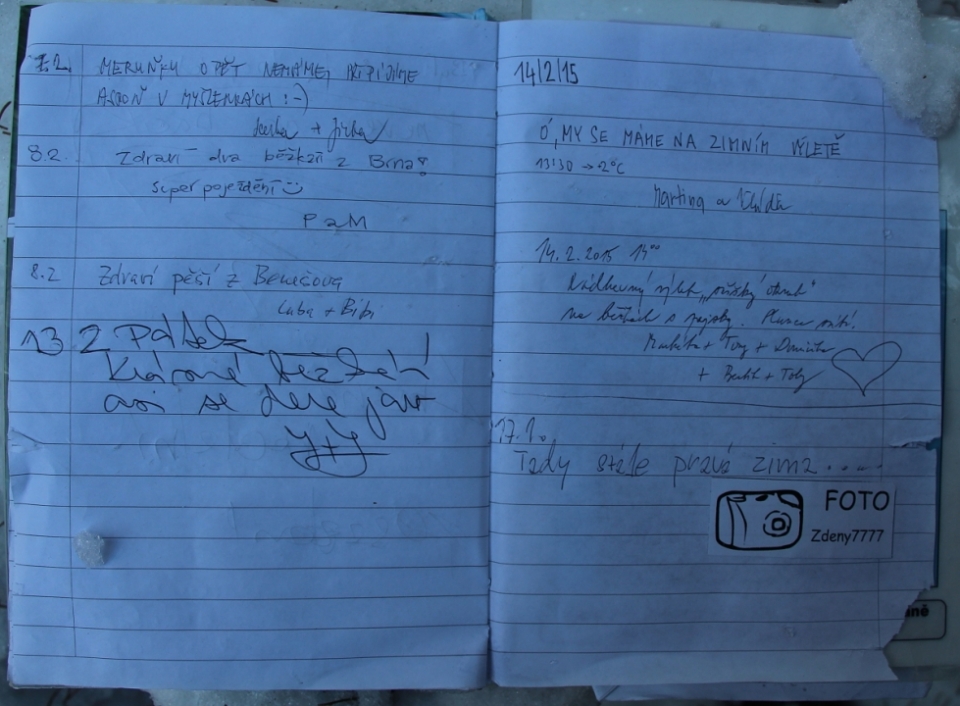 7.2. MERUŇKU OPĚT NEMÁME, PŘIPÍJÍME
ASPOŇ V MYŠLENKÁCH :-)
+ Jirka
8.2. Zdraví dva běžkaři z Brna!
super poježdění
P a M
8.2 Zdraví pěší z Benečova
Luba + Bibi
13 2 Pátek
Krásné běžkání
asi se dere jaro
J+J
14/2/15
Ó, MY SE MÁME NA ZIMNÍM VÝLETĚ
13:30 → -2°C
Martina a
14.2.2015 14⁰⁰
Nádherný výlet
na běžkách s pejsky.
Markéta + Tony + Dominika
+ + Toby
17.1.
Tady stále pravá zima.....
FOTO
Zdeny7777